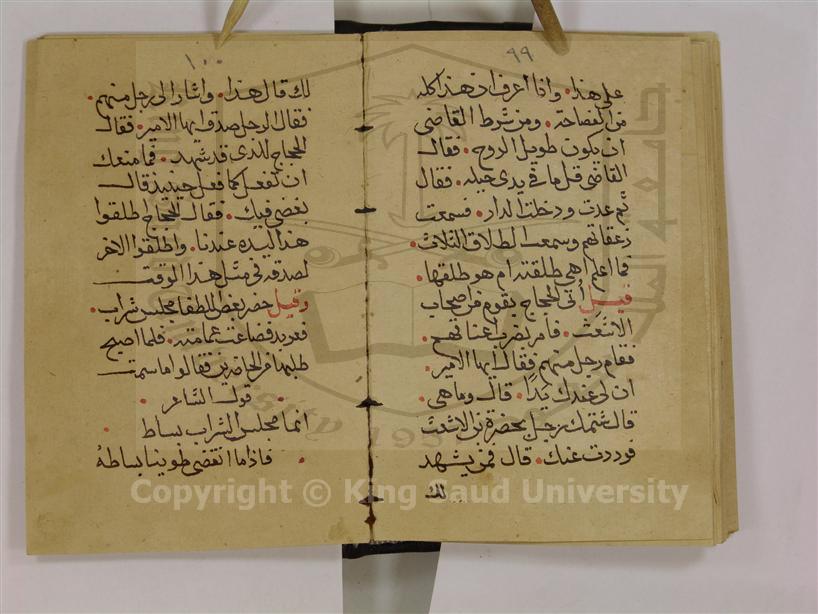 ٩٩
على هذا. وانا اعرف ان هذا كله
من الفصاحة. ومن شرط القاضي
ان يكون طويل الروح. فقال
القاضي قل ما في يدي حيله. فقال
ثم عدت ودخلت الدار. فسمعت
زعقاتهم وسمعت الطلاق الثلاث.
فما اعلم اهي طلقته ام هو طلقها.
قيل أتى الحجاج بقوم من اصحاب
الاشعث. فامر بضرب اعناقهم.
فقام رجل منهم فقال ايها الامير.
ان لي عندك يدا. قال وما هي.
قال شتمك رجل بحضرة بن الاشعث
فرددت عنك. قال فمن يشهد
لك
١٠٠
لك قال هذا. واشار الى رجل منهم.
فقال الرجل صدق ايها الامير. فقال
الحجاج للذي قد شهد. فما منعك
ان تفعل كما فعل حينيذ قال
بغضي فيك. فقال الحجاج اطلقوا
هذا ليده عندنا. واطلقوا الاخر
لصدقه في مثل هذا الوقت
وقيل حضر بعض اللطفا مجلس شراب.
فعربد فضاعت عمامته. فلما اصبح
طلبها من الحاضرين فقالوا ما سمعت
قول الشاعر
انما مجلس الشراب بساط
فاذا ما انقضى طوينا بساطه
Copyright © King Saud University